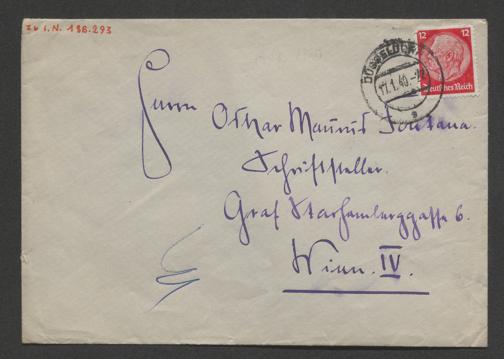 zu I.N. 186.293
12 12
Deutsches Reich
DÜSSELDORF
17.1.40.
Herrn
Oskar Maurus Fontana.
Schriftsteller.
Graf Starhemberggasse 6.
Wien. IV.